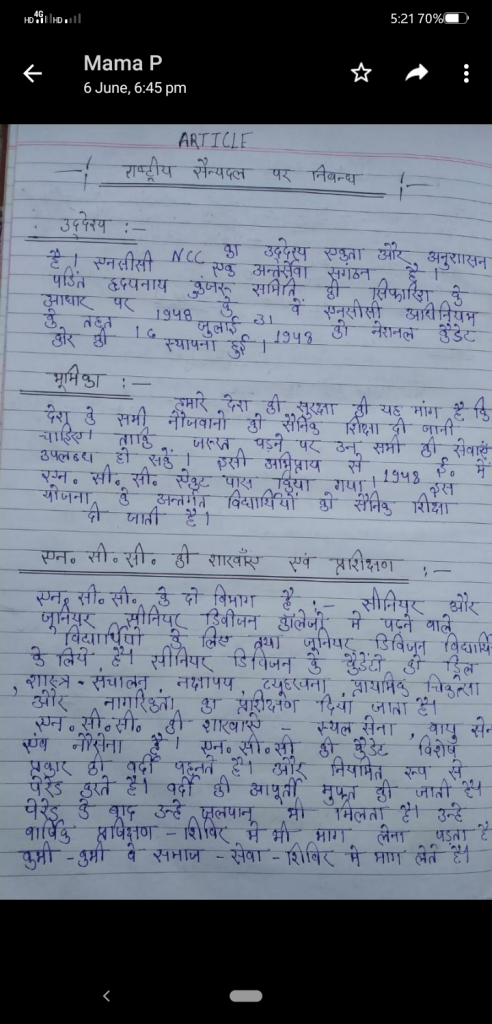 HD 4G HD 5:21 70%
Mama P
6 June, 6:45 pm
ARTICLE
राष्ट्रीय सैन्यदल पर निबन्ध
उद्देश्य :—
NCC का उद्देश्य एकता और अनुशासन
है। एनसीसी एक अन्तर्सेवा संगठन है।
पंडित हृदयनाथ कुंजरू समिति की सिफारिश के
आधार पर 1948 के 31 वें एनसीसी अधिनियम
के तहत 16 जुलाई 1948 को नेशनल कैडेट
कोर की स्थापना हुई।
भूमिका :—
हमारे देश की सुरक्षा की यह मांग है कि
देश के सभी नौजवानो को सैनिक शिक्षा दी जानी
चाहिए। ताकि जरूरत पड़ने पर उन सभी की सेवाएं
उपलब्ध हो सकें। इसी अभिप्राय से 1948 ई० में
एन. सी. सी. ऐक्ट पास किया गया। इस
योजना के अन्तर्गत विद्यार्थियों को सैनिक शिक्षा
दी जाती है।
एन. सी. सी. की शाखाँए एवं प्राशिक्षण :—
एन. सी. सी. के दो विभाग है :– सीनियर और
जूनियर सीनियर डिवीजन कॉलेजो मे पढने वाले
विद्यार्थियों के लिए तथा जूनियर डिविजन विद्यार्थि
के लिये है। सीनियर डिविजन के कैडेटो को ड्रिल
, शास्त्र-संचालन, प्राथमिक चिकित्सा
और नागरिकता का प्राशिक्षण दिया जाता है।
एन. सी. सी. की शाखाएं – स्थल सेना, वायु सेन
एंव नौसेना है। एन. सी. सी की कैडेट विशेष
प्रकार की वर्दी पहनते है। और नियमित रूप से
पेरैड करते है। वर्दी की आपूर्ती मुफ्त की जाती है।
पेरैड के बाद उन्हे जलपान भी मिलता है। उन्हे
वार्षिक प्रशिक्षण-शिविर मे भी भाग लेना पड़ता है
कभी-कभी वे समाज-सेवा-शिविर मे भाग लेते है।